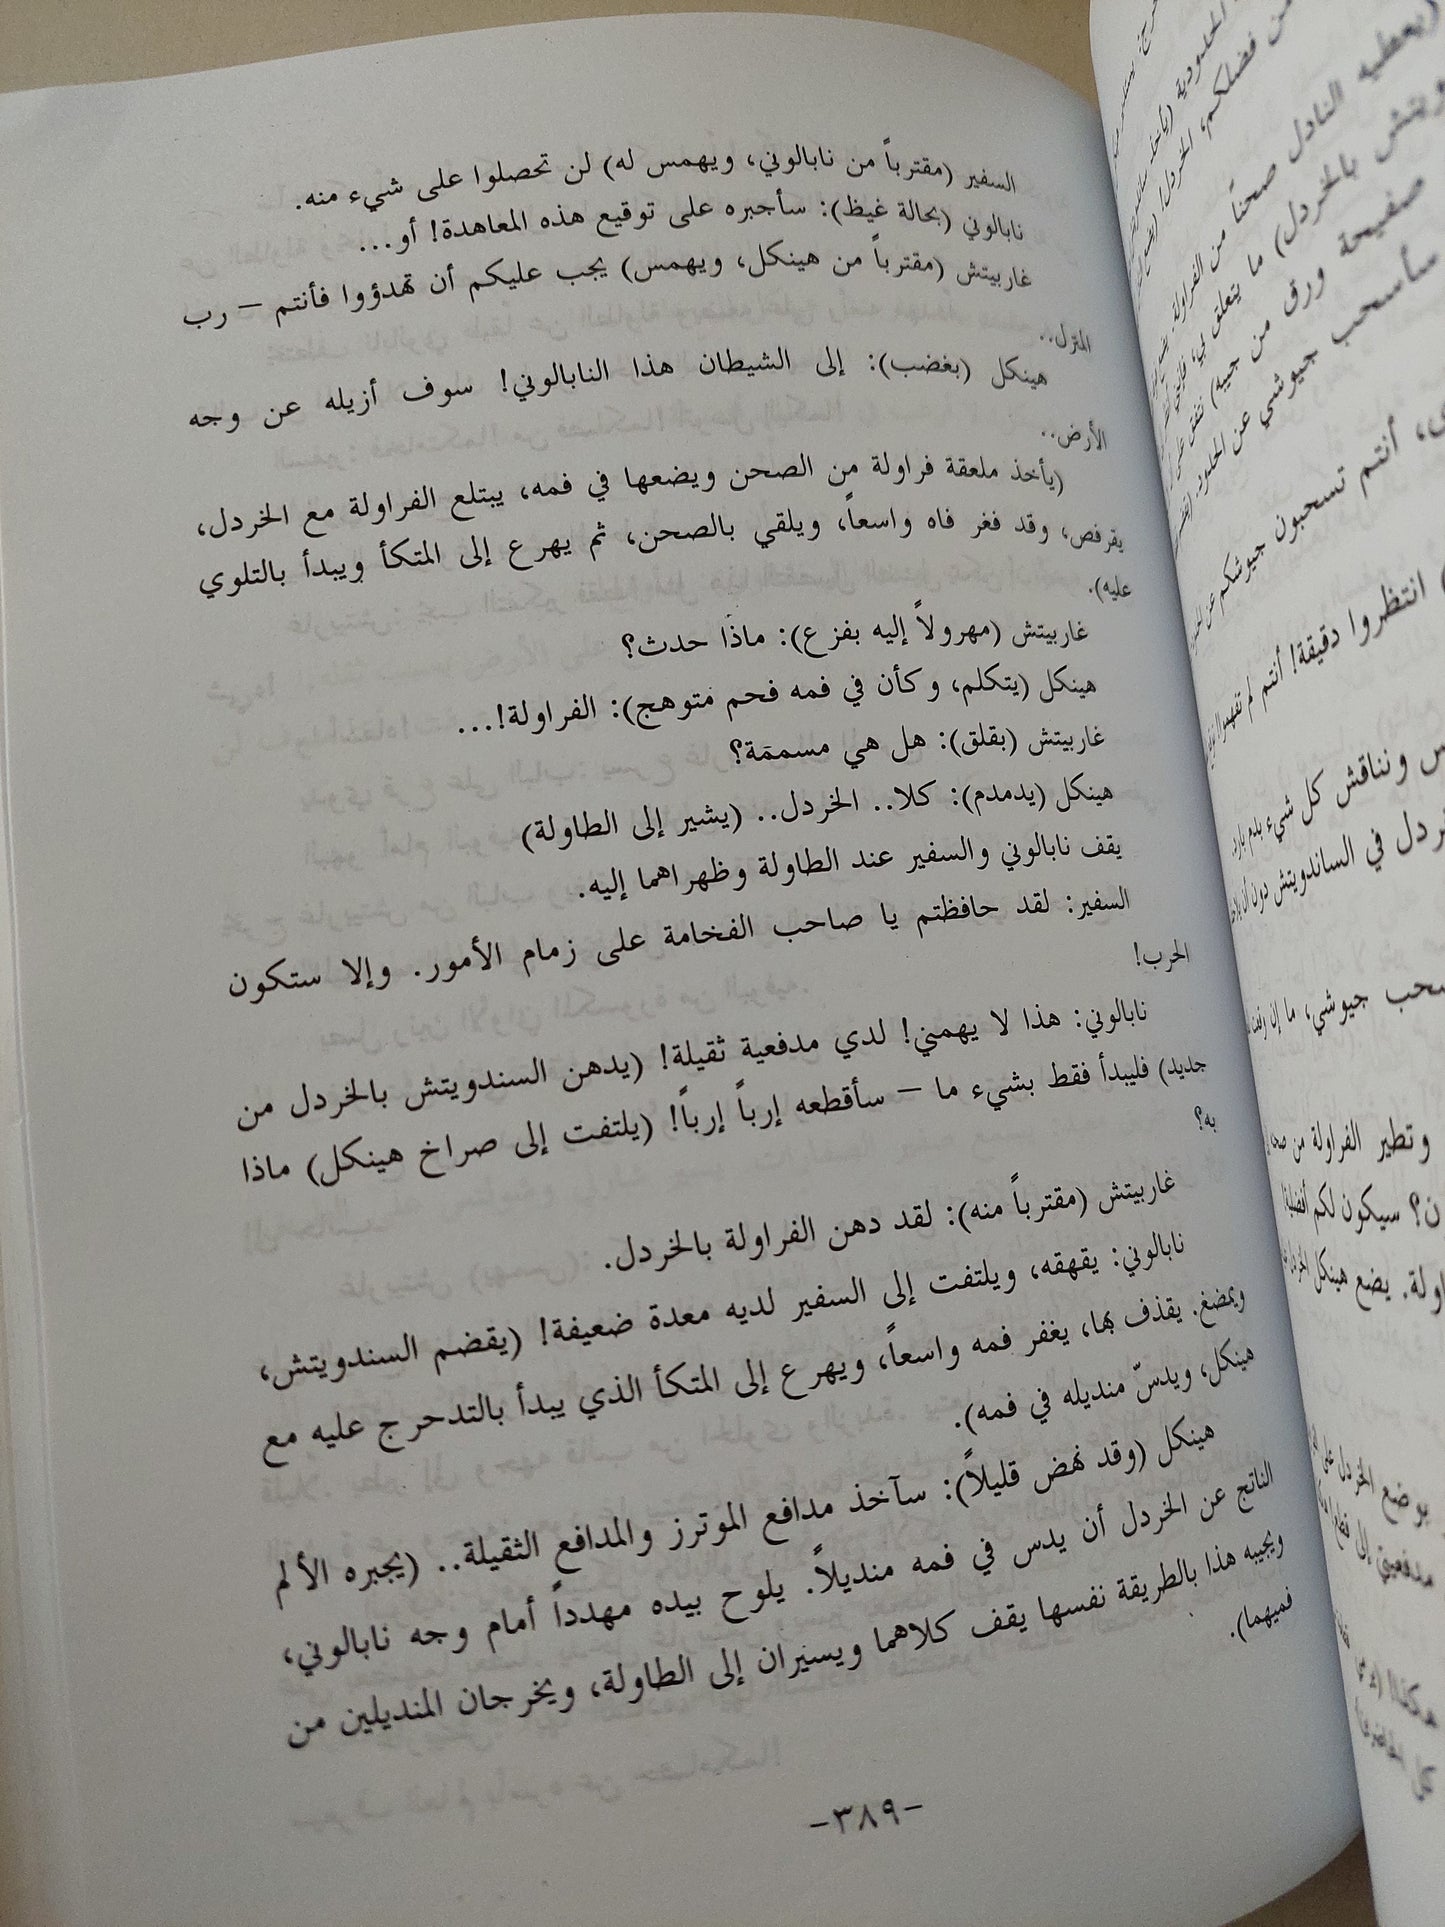 السفير (مقترباً من نابالوني، ويهمس له) لن تحصلوا على شيء منه.
نابالوني (بحالة غيظ): سأجبره على توقيع هذه المعاهدة! أو...
غاربيتش (مقترباً من هينكل، ويهمس) يجب عليكم أن تهدؤوا فأنتم – رب
المنزل..
هينكل (بغضب): إلى الشيطان هذا النابالوني! سوف أزيله عن وجه
الأرض..
(يأخذ ملعقة فراولة من الصحن ويضعها في فمه، يبتلع الفراولة مع الخردل،
يقرفص، وقد فغر فاه واسعاً، ويلقي بالصحن، ثم يهرع إلى المتكأ ويبدأ بالتلوي
عليه).
غاربيتش (مهرولاً إليه بفزع): ماذا حدث؟
هينكل (يتكلم، وكأن في فمه فحم متوهج): الفراولة!...
غاربيتش (بقلق): هل هي مسممَة؟
هينكل (يدمدم): كلا.. الخردل.. (يشير إلى الطاولة)
يقف نابالوني والسفير عند الطاولة وظهراهما إليه.
السفير: لقد حافظتم يا صاحب الفخامة على زمام الأمور. وإلا ستكون
الحرب!
نابالوني: هذا لا يهمني! لدي مدفعية ثقيلة! (يدهن السندويتش بالخردل من
جديد) فليبدأ فقط بشيء ما – سأقطعه إرباً إرباً! (يلتفت إلى صراخ هينكل) ماذا
به؟
غاربيتش (مقترباً منه): لقد دهن الفراولة بالخردل.
نابالوني: يقهقه، ويلتفت إلى السفير لديه معدة ضعيفة! (يقضم السندويتش،
ويمضغ. يقذف بها، يغفر فمه واسعاً، ويهرع إلى المتكأ الذي يبدأ بالتدحرج عليه مع
هينكل، ويدسّ منديله في فمه).
هينكل (وقد نهض قليلاً): سآخذ مدافع الموترز والمدافع الثقيلة.. (يجبره الألم
الناتج عن الخردل أن يدس في فمه منديلاً. يلوح بيده مهدداً أمام وجه نابالوني،
ويجيبه هذا بالطريقة نفسها يقف كلاهما ويسيران إلى الطاولة، ويخرجان المنديلين من
فميهما).
-٣٨٩-
من فضلكم، الخردل!
(يعطيه النادل صحناً من الفراولة.
بالخردل) ما يتعلق بي،
صفيحة ورق من جيبه)
سأسحب جيوشي عن الحدود.
أنتم تسحبون جيوشكم عن
انتظروا دقيقة! أنتم لم تفهموا
ونناقش كل شيء بدم بارد.
في الساندويتش دون أن
جيوشي، ما إن
وتطير الفراولة من
سيكون لكم
يضع هينكل الخردل
بوضع الخردل على